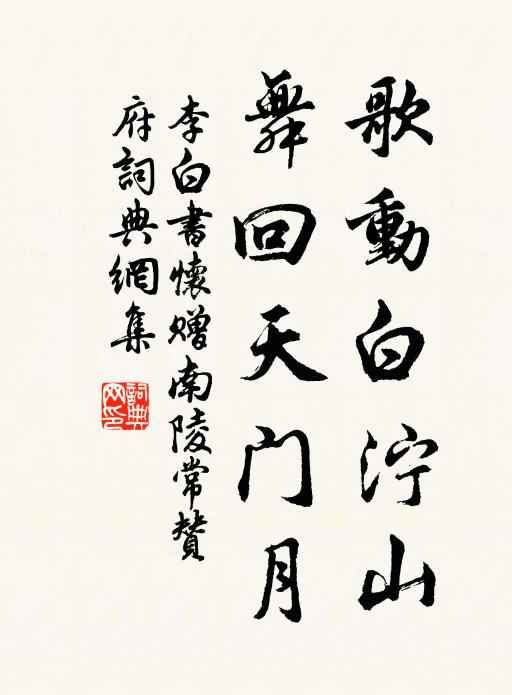 歌動白泞山
舞回天门月
李白書懷贈南陵常贊
府詞典網集
詞典
网印